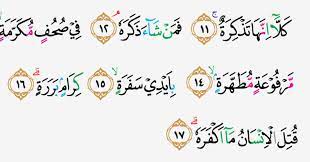 كَلَّآ اِنَّهَا تَذْكِرَةٌ ۚ ١١ فَمَنْ شَاۤءَ ذَكَرَهٗ ۘ ١٢ فِيْ صُحُفٍ مُّكَرَّمَةٍ
مَّرْفُوْعَةٍ مُّطَهَّرَةٍ ۢ ۙ ١٤ بِاَيْدِيْ سَفَرَةٍ ۙ ١٥ كِرَامٍۢ بَرَرَةٍ ۗ ١٦
قُتِلَ الْاِنْسَانُ مَآ اَكْفَرَهٗ ۗ ١٧